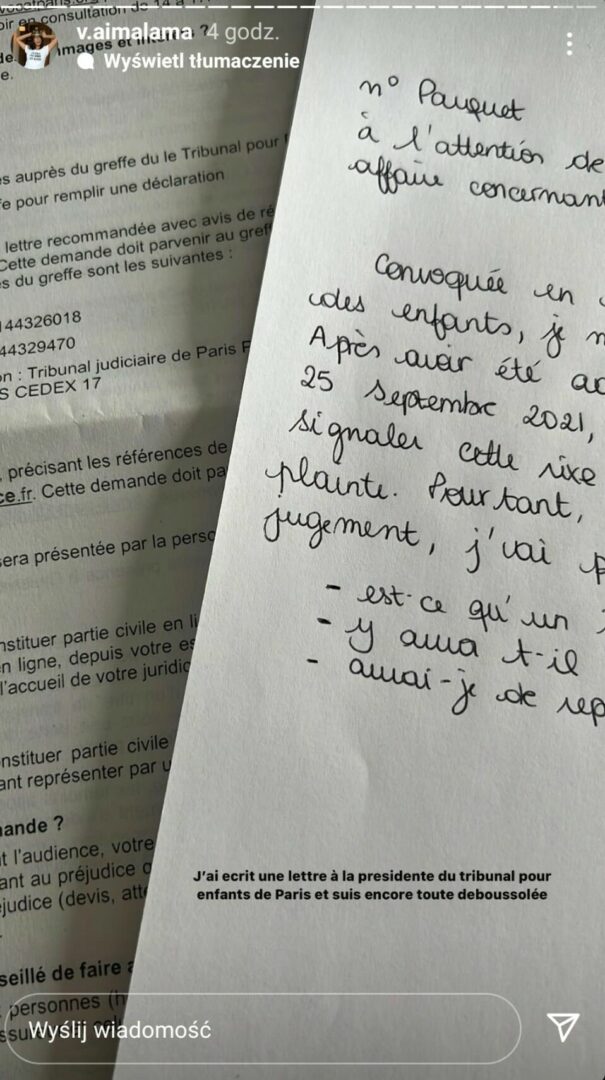 v.aimalama 4 godz.
Wyświetl tłumaczenie
oir en consultation de 14 à
images et ?
e.
es auprès du greffe du le Tribunal pour
fe pour remplir une déclaration
lettre recommandée avec avis de ré
Cette demande doit parvenir au greff
s du greffe sont les suivantes :
144326018
44329470
on : Tribunal judiciaire de Paris
S CEDEX 17
, précisant les références de
ce.fr. Cette demande doit pa
sera présentée par la perso
nstituer partie civile en li
n ligne, depuis votre es
l'accueil de votre juridic
onstituer partie civile
ant représenter par u
ande ?
t l'audience, votre
ant au préjudice o
judice (devis, atte
seillé de faire a
personnes (h
n° Pauquet
à l'attention de
affaire concernant
Convoquée en
des enfants, je n
Après avoir été ac
25 septembre 2021,
signaler cette rixe
plainte. Pourtant,
jugement, j'vai p
- est-ce qu'un
- y aura t-il
- aurai-je de rep
J'ai ecrit une lettre à la presidente du tribunal pour
enfants de Paris et suis encore toute deboussolée
Wyślij wiadomość